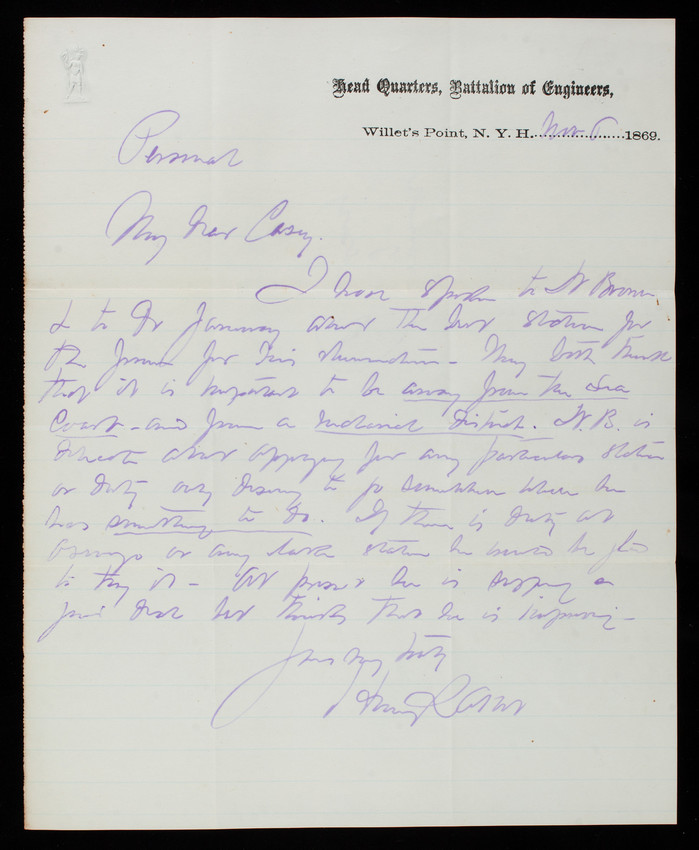 Head Quarters, Battalion of Engineers,
Willet's Point, N. Y. H. Nov 6 1869.
Personal
My dear Casey.
I have spoken to Dr Brown
& to Dr Janeway about the best station for
the for his - They both think
that it is important to be away from the Sea
Coast - and from a malarial district. H. B. is
delicate about applying for any particular station
or duty only desiring to go somewhere where he
has something to do. If there is duty at
Oswego or any lake station he would be glad
to try it - At present he is suffering a
good deal but thinks that he is improving -
Yours very truly
Henry L Abbot